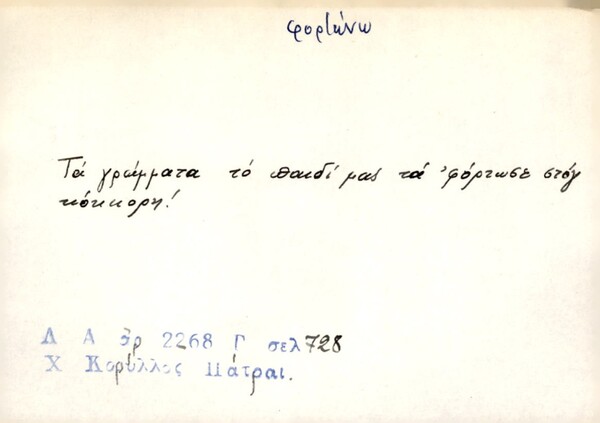 φορτώνω
Τά γράμματα τό παιδί μας τά 'φόρτωσε στόγ
κόκκορη!
Λ Α ἀρ 2268 Γ σελ 728
Χ Κορύλλος Πάτραι.